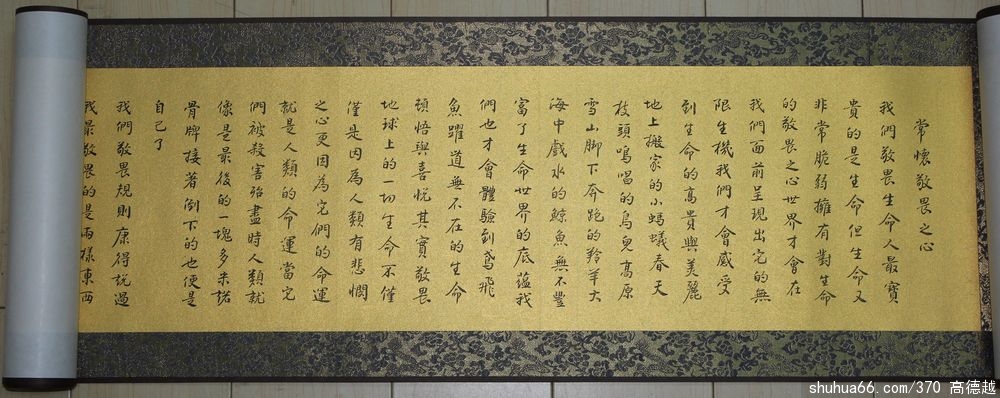 常懷敬畏之心
我們敬畏生命人最寶
貴的是生命但生命又
非常脆弱擁有對生命
的敬畏之心世界才會在
我們面前呈現出它的無
限生機我們才會感受
到生命的高貴與美麗
地上搬家的小螞蟻春天
枝頭鳴唱的鳥兒高原
雪山脚下奔跑的羚羊大
海中戲水的鯨魚無不豐
富了生命世界的底蘊我
們也才會體驗到鳶飛
魚躍道無不在的生命
頓悟與喜悅其實敬畏
地球上的一切生命不僅
僅是因為人類有悲憫
之心更因為它們的命運
就是人類的命運當它
們被殺害殆盡時人類就
像是最後的一塊多米諾
骨牌接著倒下的也便是
自己了
我們敬畏規則康得說過
我最敬畏的是兩樣東西
shuhua66.com/370 高德越